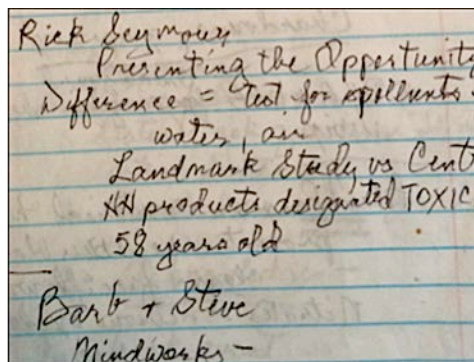 Rick Seymour
Presenting the Opportunity
Difference = test for pollutants -
water, air
Landmark Study vs Cent
HH products designated TOXIC
58 years old
Barb + Steve
Mindworks -